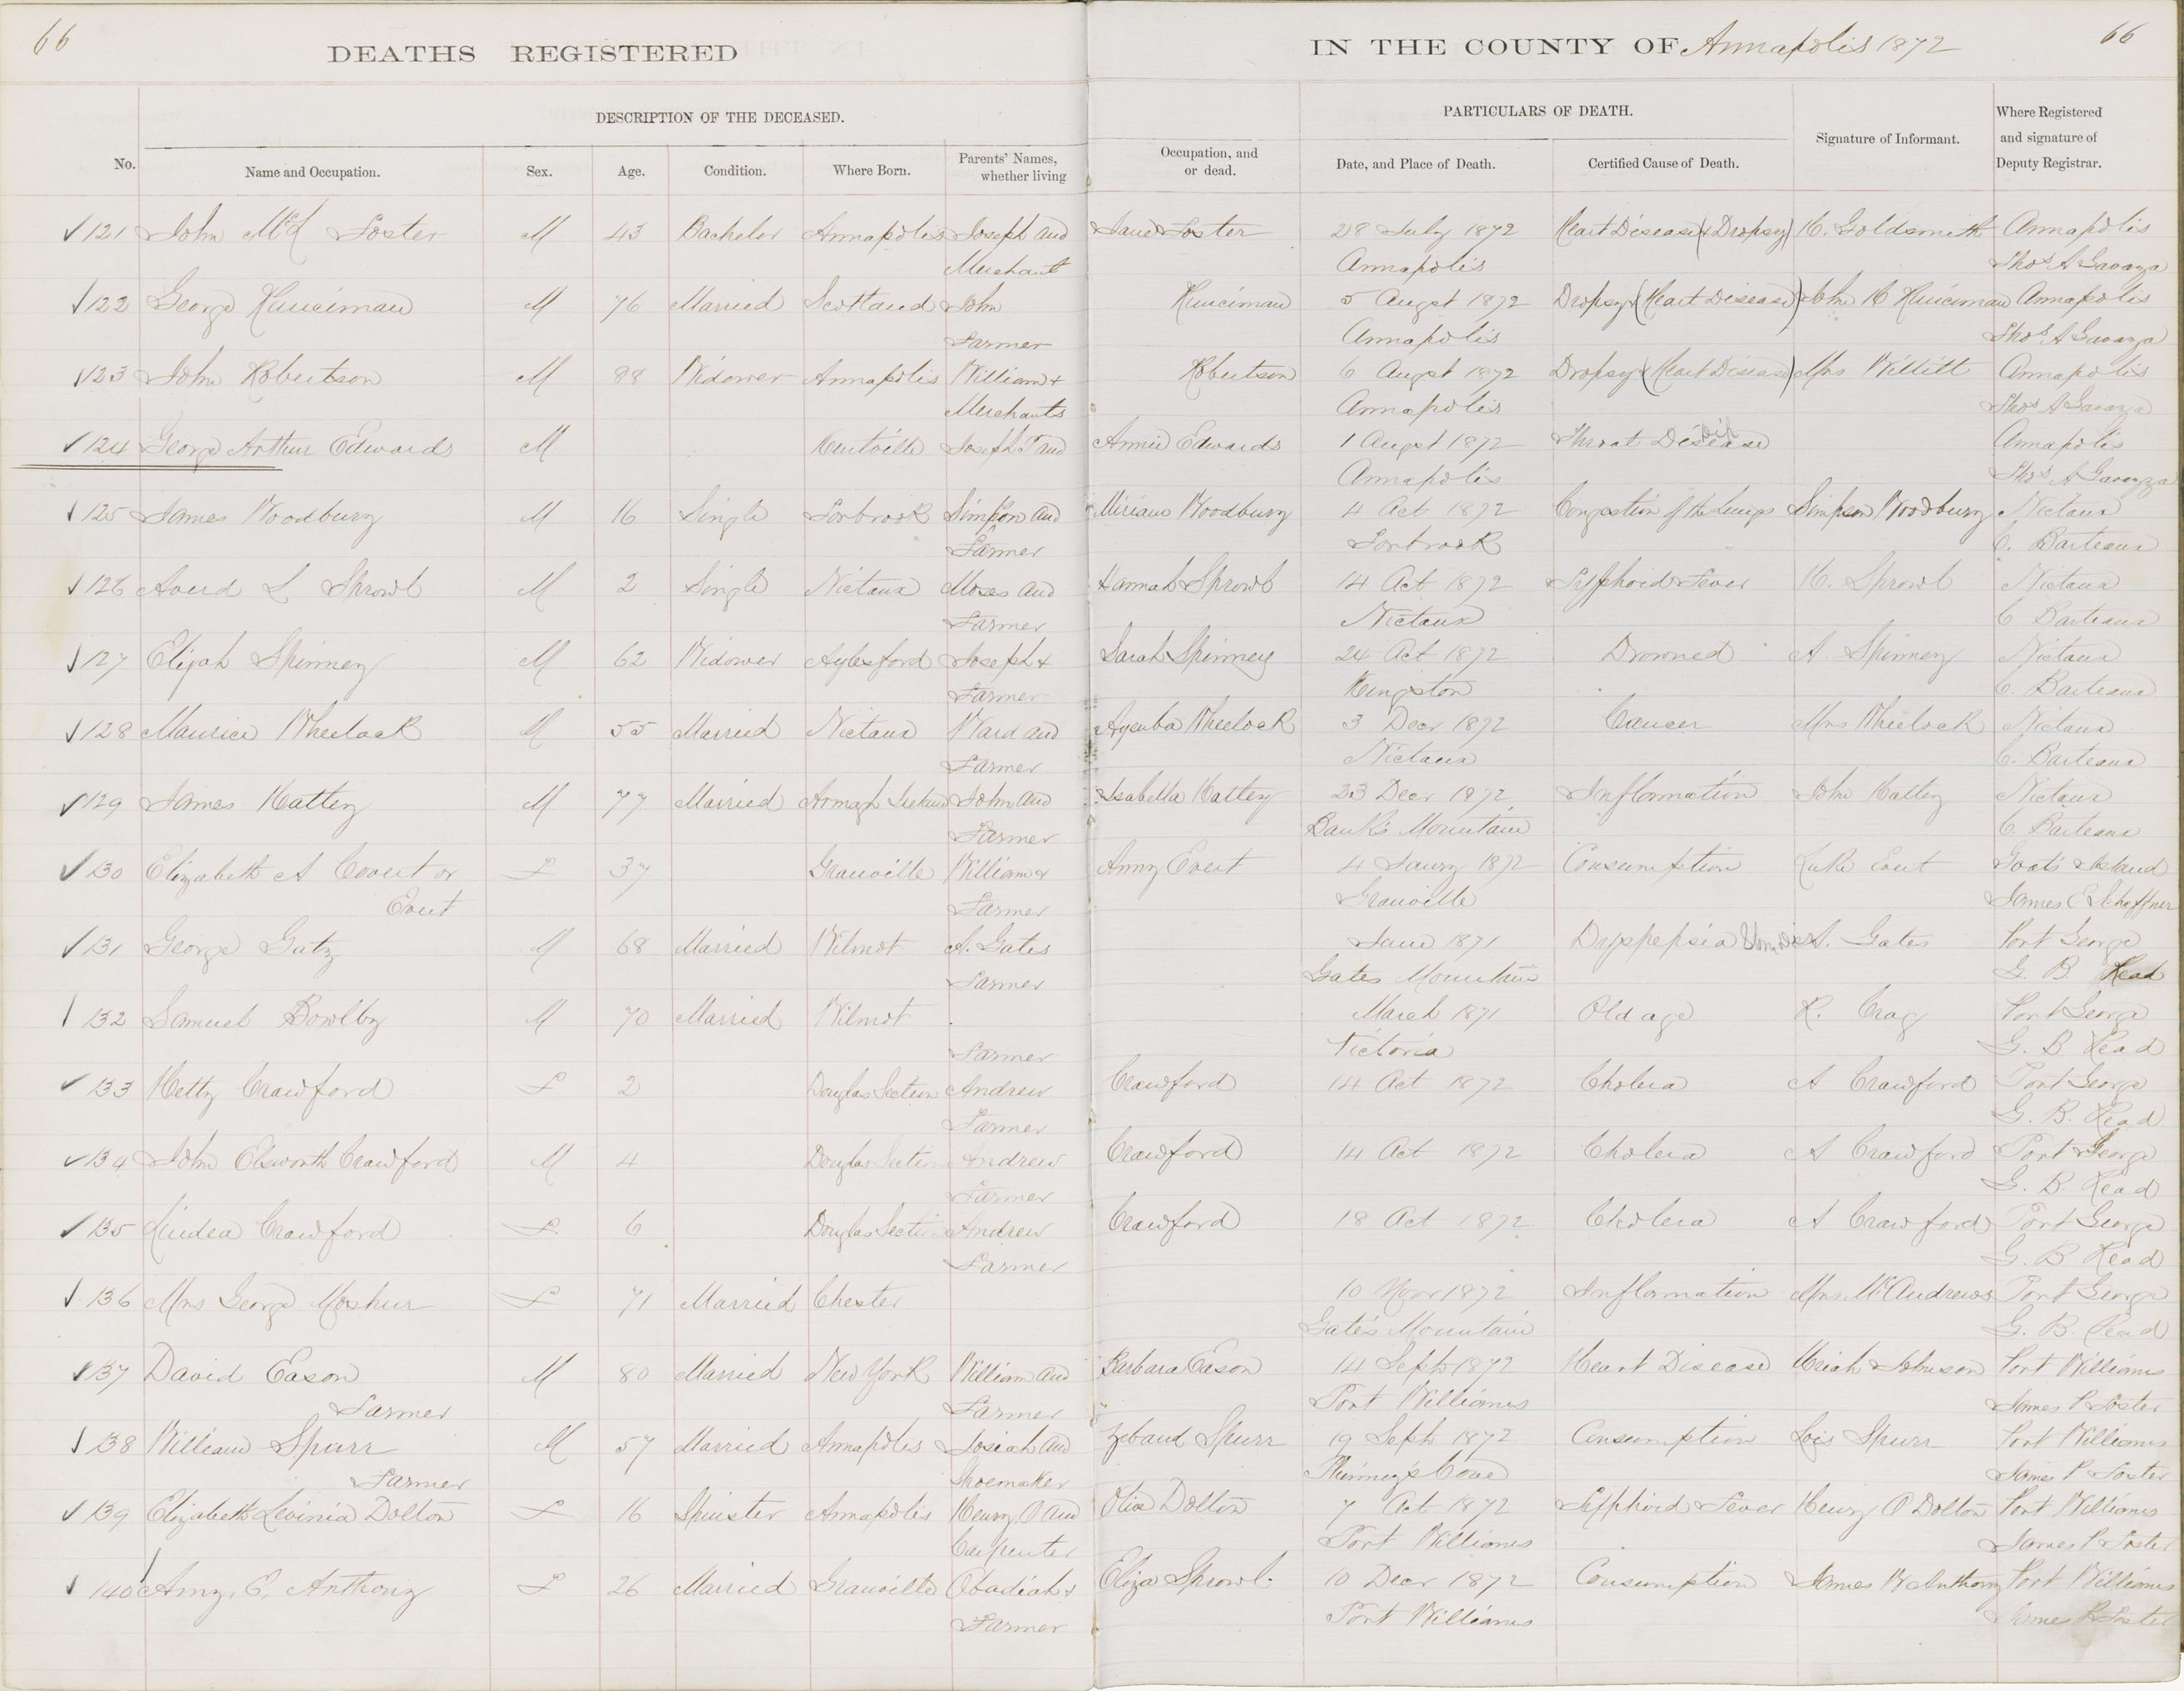 66
DEATHS REGISTERED
IN THE COUNTY OF Annapolis 1872
66
DESCRIPTION OF THE DECEASED.
PARTICULARS OF DEATH.
No. Name and Occupation. Sex. Age. Condition. Where Born. Parents' Names, whether living Occupation, and or dead. Date, and Place of Death. Certified Cause of Death. Signature of Informant. Where Registered and signature of Deputy Registrar.
121 John McL Foster M 43 Bachelor Annapolis Joseph and Jane Foster 28 July 1872 Heart Disease (& Dropsy) H. Goldsmith Annapolis
Merchant Annapolis Thos A Gavaza
122 George Runciman M 76 Married Scotland John Runciman 5 Augst 1872 Dropsy & (Heart Disease) John H Runciman Annapolis
Farmer Annapolis Thos A Gavaza
123 John Robertson M 88 Widower Annapolis William + Robertson 6 Augst 1872 Dropsy & (Heart Disease) Mrs Willitt Annapolis
Merchants Annapolis Thos A Gavaza
124 George Arthur Edwards M Kentville Joseph T and Annie Edwards 1 Augst 1872 Throat Disease Annapolis
Annapolis Thos A Gavaza
125 James Woodbury M 16 Single Torbrook Simpson and Miriam Woodbury 4 Oct 1872 Congestion of the Lungs Simpson Woodbury Nictaux
Farmer Torbrook C. Barteaux
126 L Sprowl M 2 Single Nictaux Moses and Hannah Sprowl 14 Oct 1872 Typhoid Fever H. Sprowl Nictaux
Farmer Nictaux C Barteaux
127 Elijah Spinney M 62 Widower Aylesford Joseph + Sarah Spinney 24 Oct 1872 Drowned A Spinney Nictaux
Farmer Kingston C. Barteaux
128 Maurice Wheelock M 55 Married Nictaux Ward and Wheelock 3 Decr 1872 Cancer Mrs Wheelock Nictaux
Farmer Nictaux C. Barteaux
129 James Hatley M 77 Married Armagh Ireland John and Isabella Hatley 23 Decr 1872 Inflormation John Hatley Nictaux
Farmer Bank's Mountain C. Barteaux
130 Elizabeth A Covert or F 37 Granville William & Anny Evert 4 Jany 1872 Consumption Luke Evert Goat's Island
Evert Farmer Granville James E Schaffner
131 George Gatz M 68 Married Wilmot A. Gates June 1871 Dyspepsia S. Gates Port George
Farmer Gates Mountain G. B. Read
132 Samuel Bowlby M 70 Married Wilmot March 1871 Old age R. Crag Port George
Farmer Victoria G. B Read
133 Hetty Crawford F 2 Douglas Section Andrew Crawford 14 Oct 1872 Cholera A Crawford Port George
Farmer G. B. Read
134 John Elsworth Crawford M 4 Douglas Section Andrew Crawford 14 Oct 1872 Cholera A Crawford Port George
Farmer G. B. Read
135 Lindea Crawford F. 6 Douglas Section Andrew Crawford 18 Oct 1872 Cholera A Crawford Port George
Farmer G. B Read
136 Mrs George Moshur F 71 Married Chester 10 Novr 1872 Inflormation Mrs. McAndrews Port George
Gate's Mountain G. B. Read
137 David Eason M 80 Married New York William and Barbara Eason 14 Sept 1872 Heart Disease Uriah Johnson Port Williams
Farmer Farmer Port Williams James P Foster
138 William Spurr M 57 Married Annapolis Josiah and Spurr 19 Sept 1872 Consumption Lois Spurr Port Williams
Farmer Shoemaker Phinney's Cove James P Foster
139 Elizabeth Levinia Dolton F 16 Spinster Annapolis Henry O and Olive Dolton 7 Oct 1872 Typhoid Fever Henry O Dolton Port Williams
Carpenter Port Williams James P Foster
140 Amy. E. Anthony F 26 Married Granville Obadiah + Eliza Sprowl. 10 Decr 1872 Consumption James W Anthony Port Williams
Farmer Port Williams James P Foster